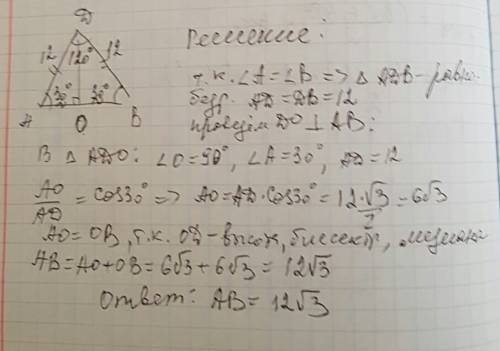 D
12 120° 12
30° 30°
A O B
Решение:
т.к. ∠A=∠B => △ADB – равно-
бедр. AD=DB=12
проведём DO⊥AB:
В △ADO: ∠O=90°, ∠A=30°, AD=12
AO/AD = cos30° => AO=AD·cos30° = 12·√3/2 = 6√3
AO=OB, т.к. OD – высот, биссект, медиана
AB=AO+OB=6√3+6√3=12√3
Ответ: AB=12√3